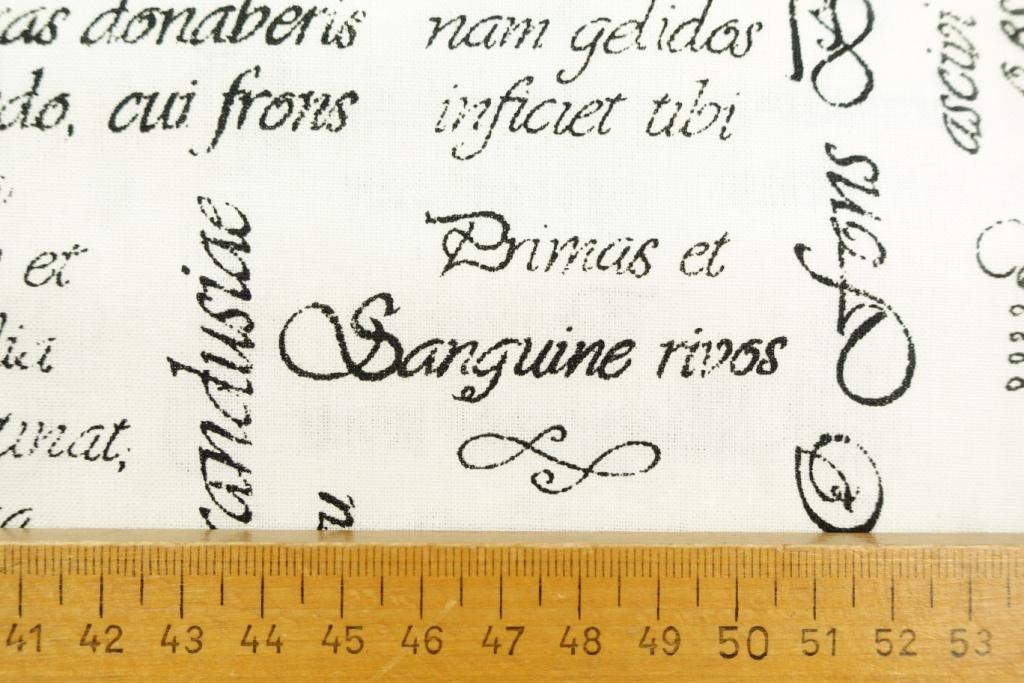 as donaberis
do, cui frons
et
lia
inat,
a
andusiae
u
nam gelidos
inficiet tibi
Primas et
Sanguine rivos
fons
O
ascivi
41 42 43 44 45 46 47 48 49 50 51 52 53